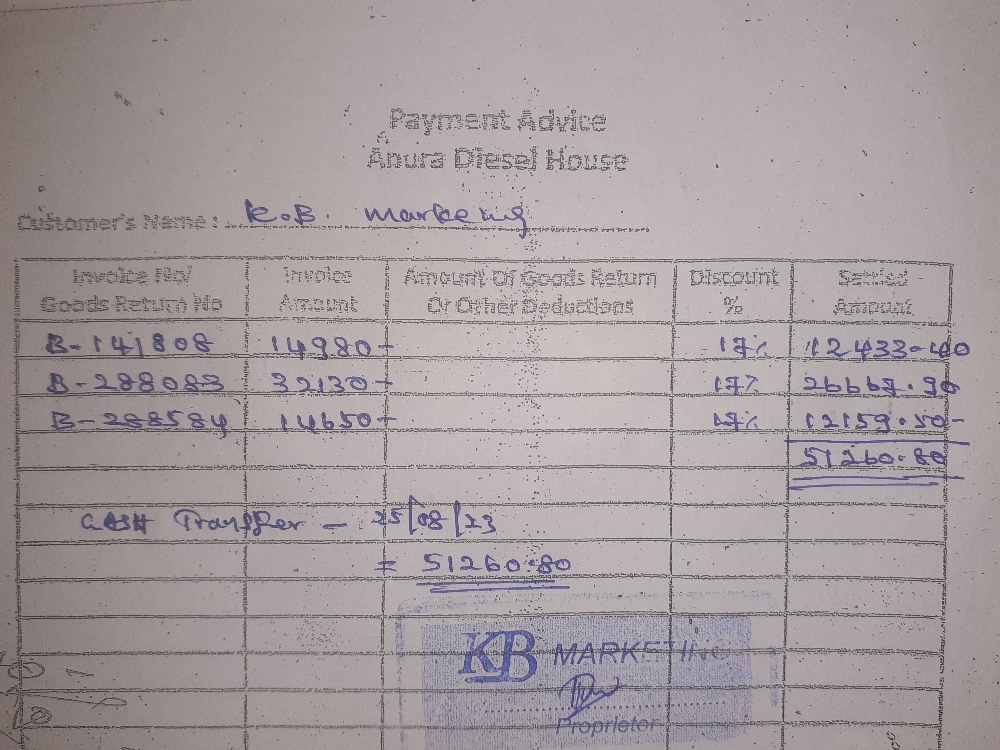 Payment Advice
Anura Diesel House
Customer's Name : K.B. Marketing
Invoice No/ Goods Return No Invoice Amount Amount Of Goods Return Or Other Deductions Discount % Settled Amount
B-141808 14980- 17% 12433-40
B-288083 32130- 17% 26667.90
B-288584 14650- 17% 12159.50-
51260.80
CASH Transfer - 25/08/23
= 51260.80
KB MARKETING
Proprietor